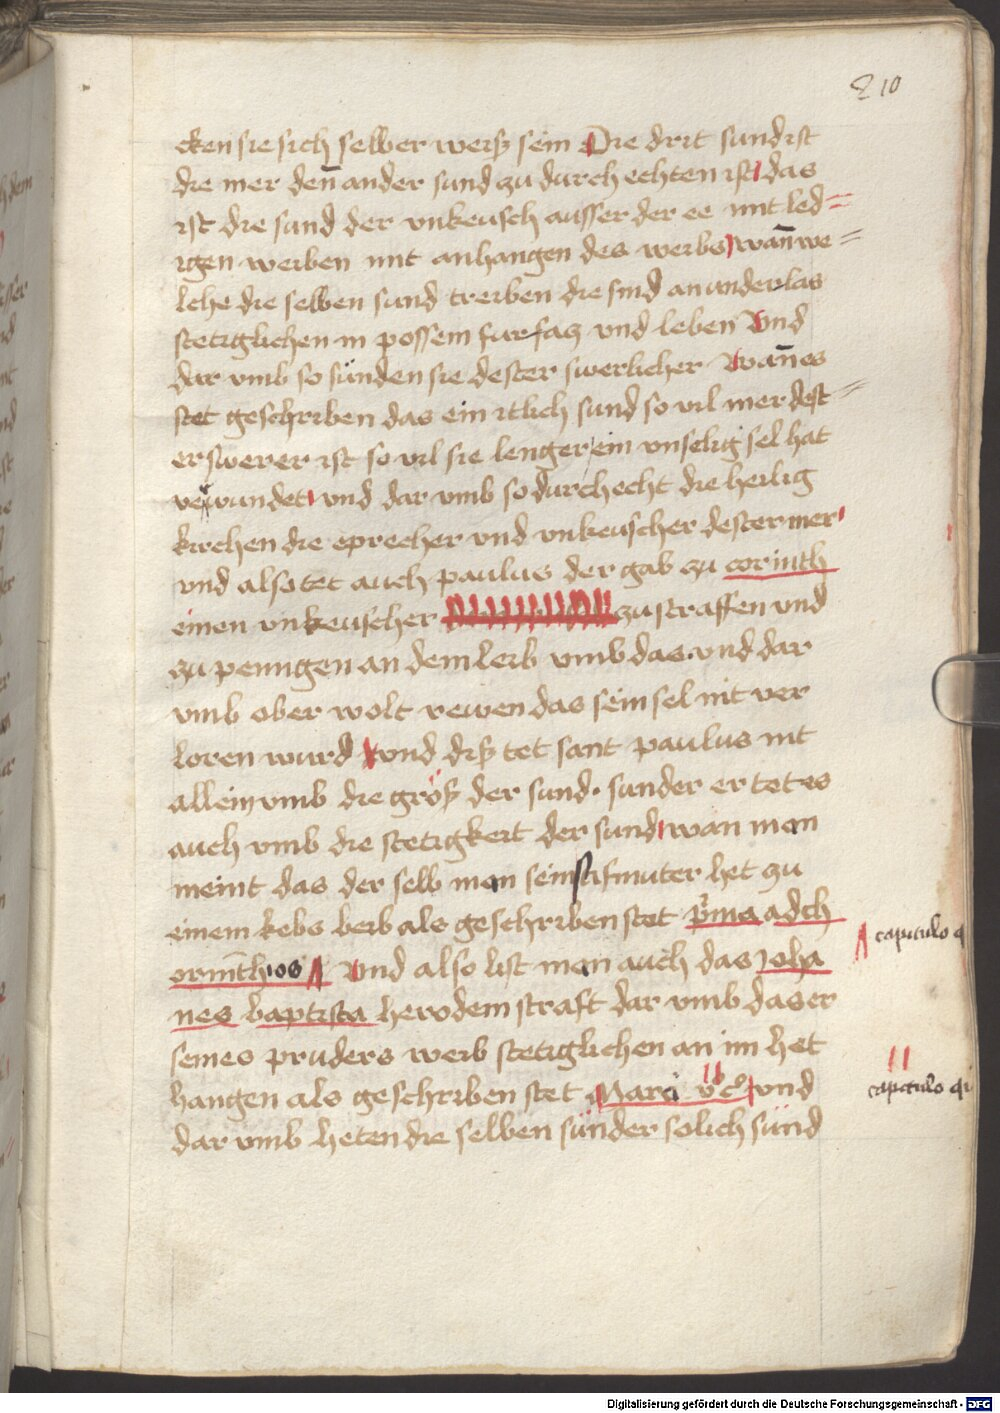 210
cken sie sich selber weiß sein Die drit sund ist
die mer deñ ander sund zu durch echten ist das
ist die sund der vnkeusch ausser der ee mit led=
igen weiben mit anhangen des weibs wañ we=
lche die selben sund treiben die sind an vnderlas
stetiglichen in possem fursacz vnd leben Vnd
dar vmb so sünden sie dester swerlicher Wañ es
stet geschriben das ein itlich sund so vil mer dest=
er swerer ist so vil sie lenger ein vnselig sel hat
verwundet vnd dar vmb so durch echt die heilig
kirchen die eprecher vnd vnkeuscher dester mer
vnd also tet auch paulus der gab zu corinth
einen vnkeuscher zu straffen vnd
zu peinigen an dem leib vmb das vnd dar
vmb ober wolt rewen das sein sel nit ver
loren wurd vnd diß tet sant paulus nit
allein vmb die größ der sund · sunder er tet es
auch vmb die stetigkeit der sund wan man
meint das der selb man sein stifmuter het zu
einem kebs beib als geschriben stet p̃ma ad ch
orint̄hios Vnd also list man auch das Joha
nes baptista herodem straft dar vmb das er
seines pruders weib stetiglichen an im het
hangen als geschriben stet Marci vnd
dar vmb heten die selben sünder solich sünd
capitulo
capitulo
Digitalisierung gefördert durch die Deutsche Forschungsgemeinschaft - DFG